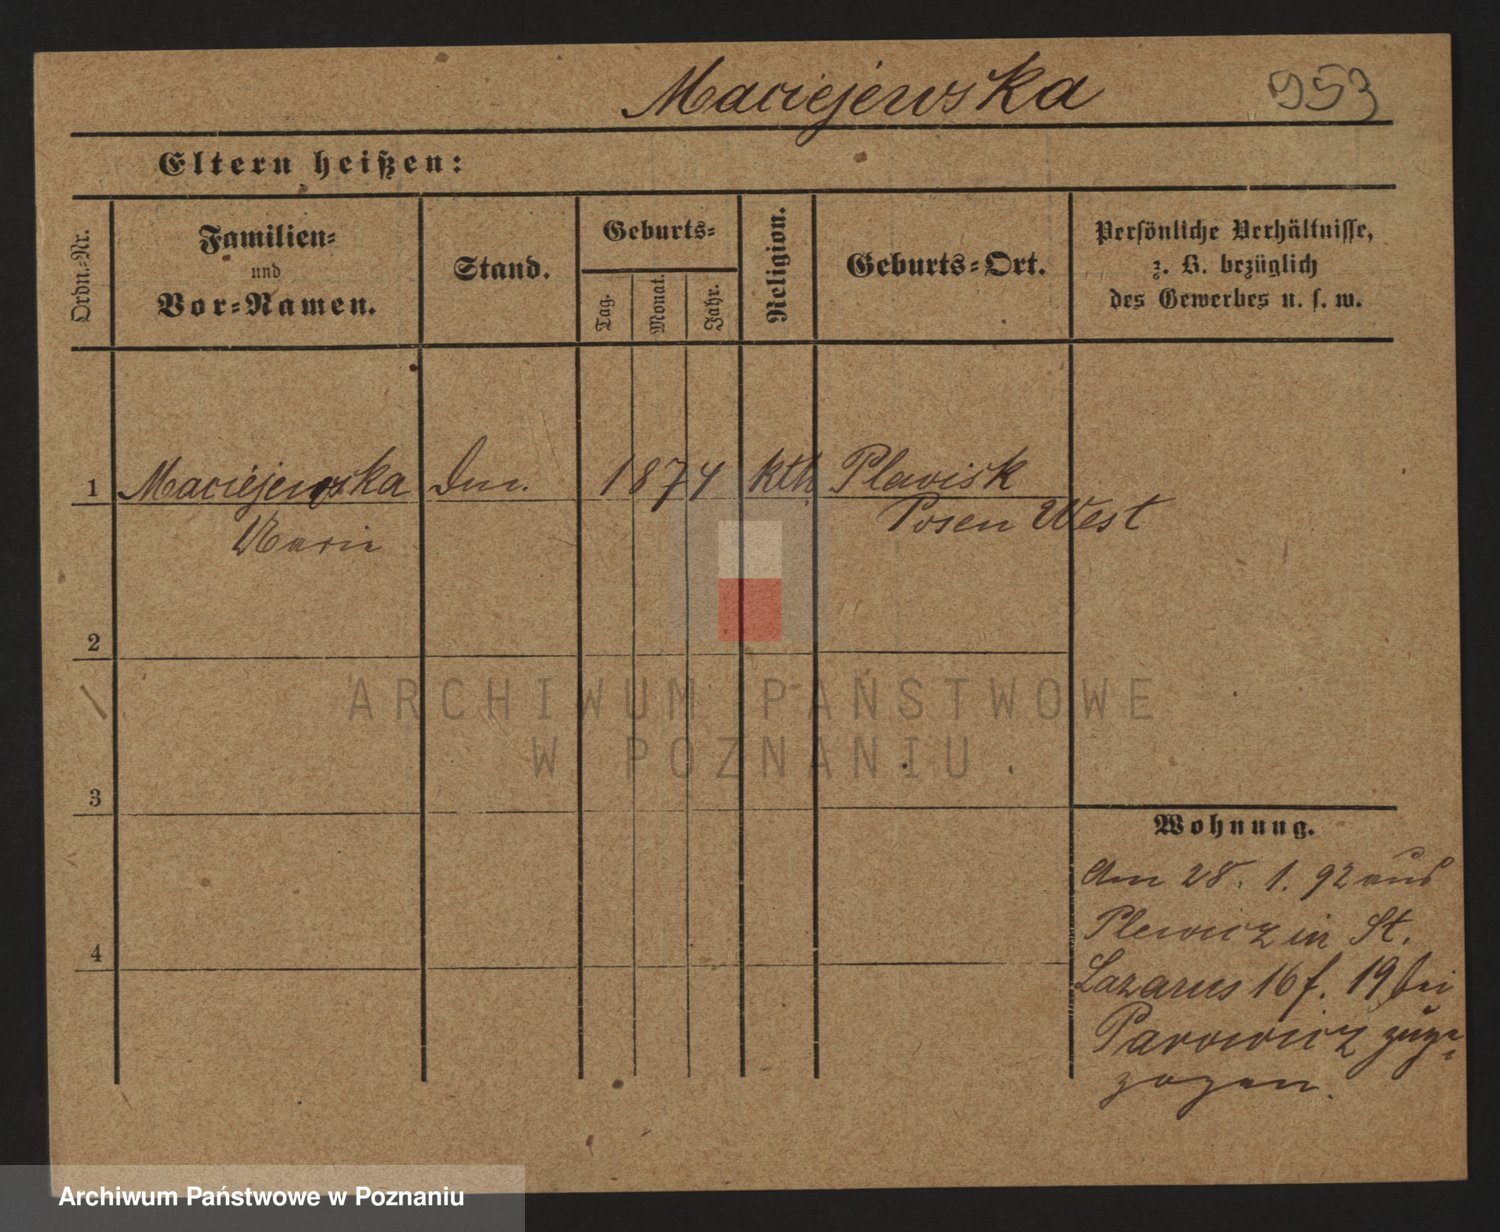 Maciejewska 953
Eltern heißen:
Ordn.-Nr.
Familien-
und
Vor-Namen.
Stand.
Geburts-
Tag.
Monat.
Jahr.
Religion.
Geburts-Ort.
Persönliche Verhältnisse,
z. B. bezüglich
des Gewerbes u. s. w.
1 Maciejewska 1874 kth Plavisk
Marie Posen West
2
3
4
Wohnung.
Am 28. 1. 92 aus
Plewicz in St.
Lazarus 16 f. 19 bei
Parowicz zuge-
zogen.
ARCHIWUM PAŃSTWOWE
W POZNANIU
Archiwum Państwowe w Poznaniu